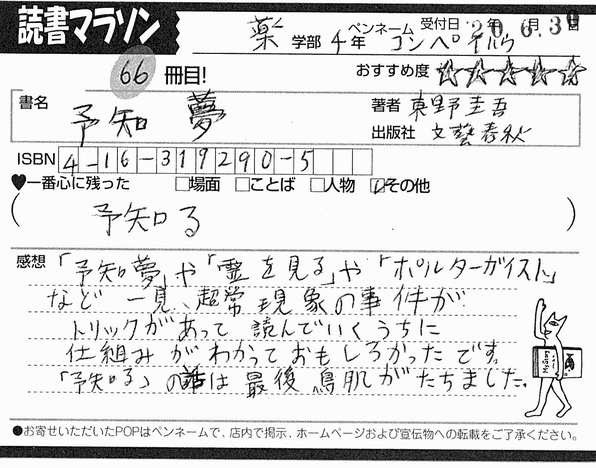 読書マラソン
薬 学部 4年 ペンネーム コンペイトウ 受付日
66 冊目! おすすめ度 ☆☆☆☆☆
書名 予知夢
著者 東野圭吾
出版社 文藝春秋
ISBN 4-16-319290-5
♥一番心に残った □場面 □ことば □人物 ☑その他
( 予知る )
感想 「予知夢」や「霊を見る」や「ポルターガイスト」
など 一見、超常現象の事件が
トリックがあって 読んでいくうちに
仕組みがわかっておもしろかったです。
「予知る」の話は最後鳥肌がたちました。
●お寄せいただいたPOPはペンネームで、店内で掲示、ホームページおよび宣伝物への転載をご了承ください。